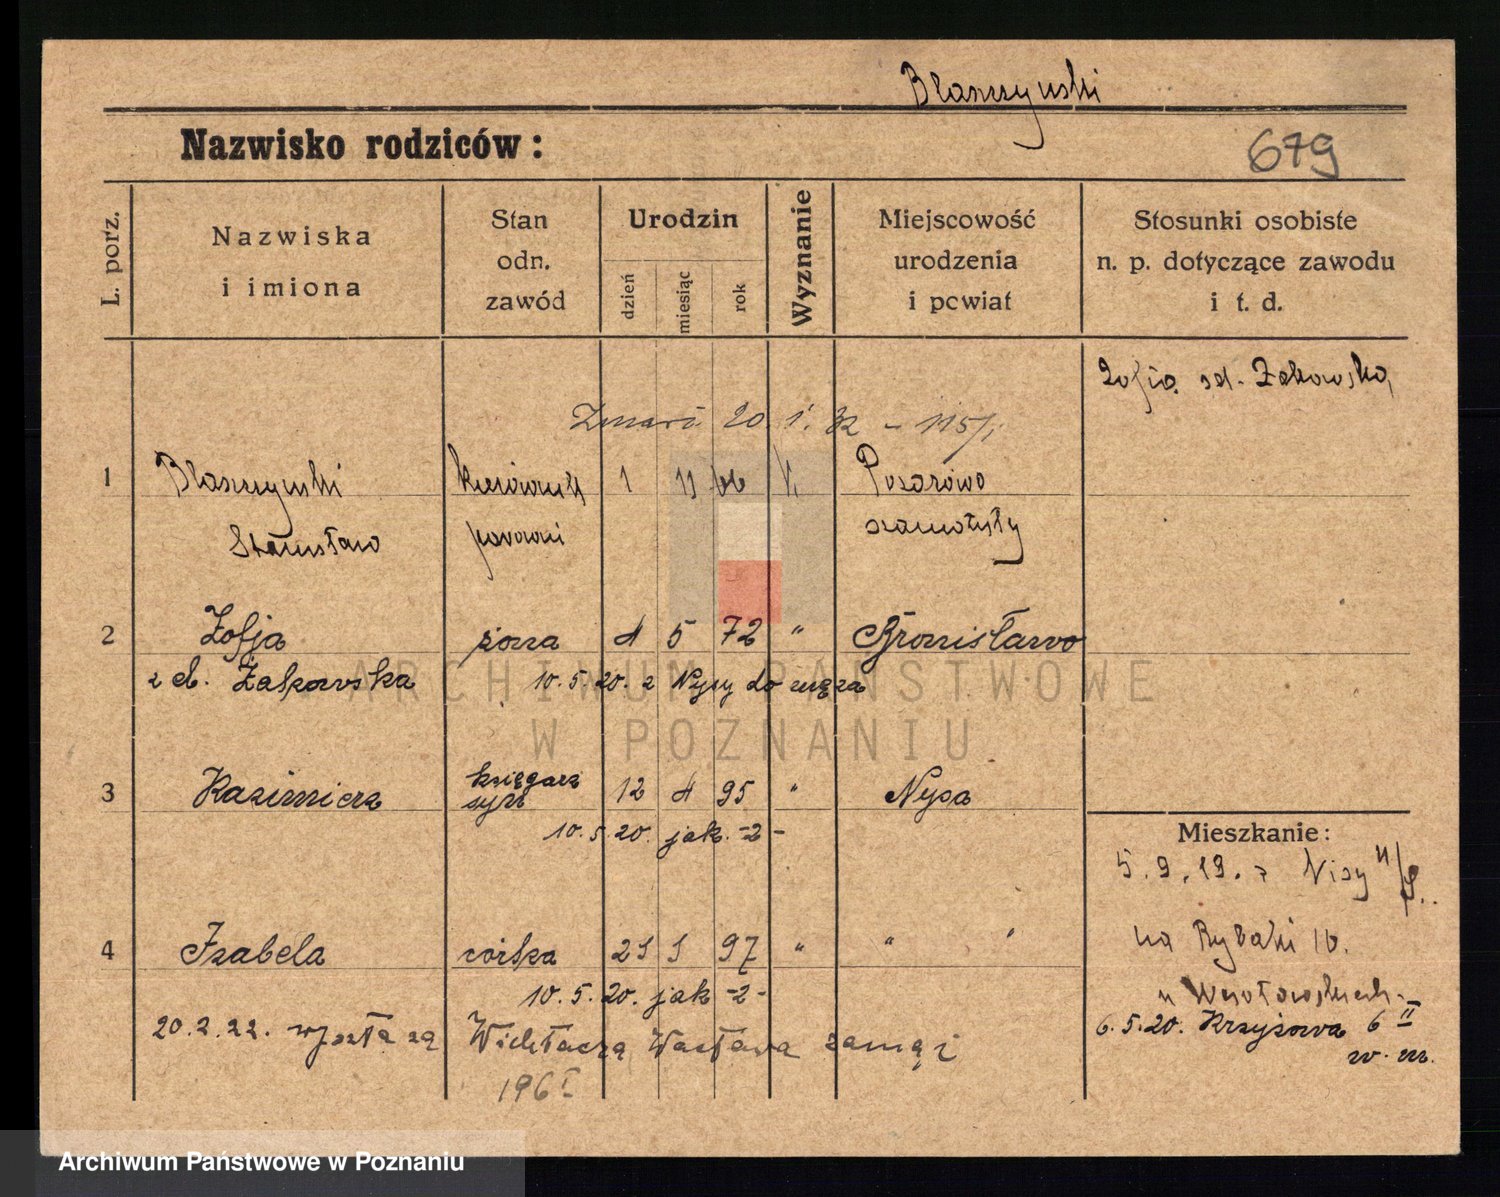 Błaszczyński
Nazwisko rodziców:
679
L. porz.
Nazwiska
i imiona
Stan
odn.
zawód
Urodzin
dzień
miesiąc
rok
Wyznanie
Miejscowość
urodzenia
i powiat
Stosunki osobiste
n. p. dotyczące zawodu
i t. d.
Zofia Żakowska
Zmarł 20 1. 32 - 115/
1 Błaszczyński 1 11 66 Pożarowo
Stanisław szamotuły
2 Zofja żona 4 5 72 " Bronisławo
z d. Żakowska 10.5.20. z Nysy do męża
ARCHIWUM PAŃSTWOWE
W POZNANIU
3 Kazimierz księgarz 12 4 95 " Nysa
syn
10.5.20. jak -2-
Mieszkanie:
5.9.19. z Nisy
4 Izabela córka 2 97 " " "
na Rybaki 10.
10.5.20. jak -2-
6.5.20. Krzyżowa 6 II
20.2.22. wyszła za Wacława zamąż
w. m.
196
Archiwum Państwowe w Poznaniu